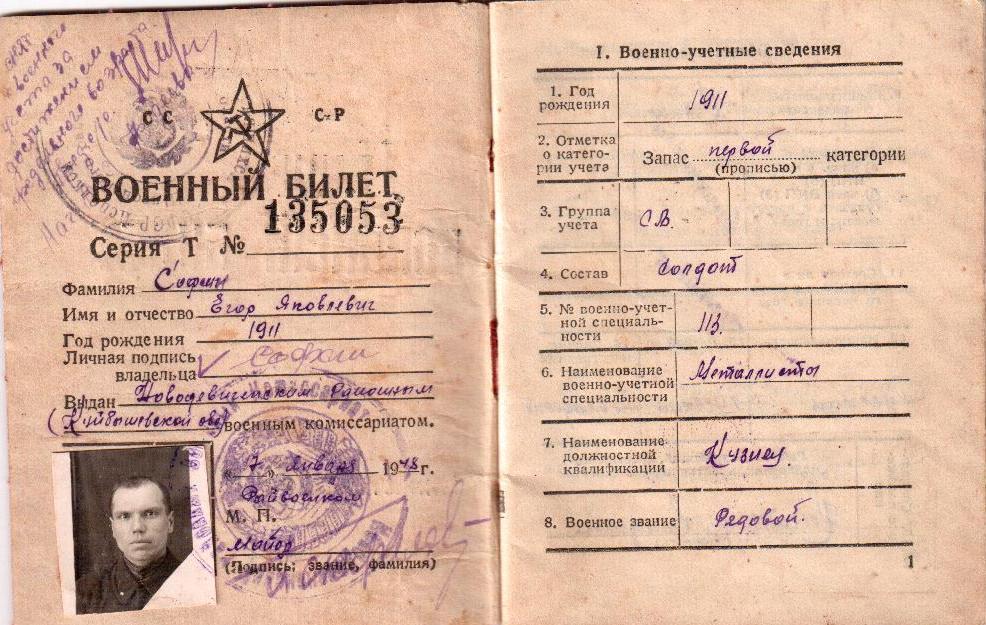 С С С Р
ВОЕННЫЙ БИЛЕТ
135053
Серия Т №
Фамилия Софин
Имя и отчество Егор Яковлевич
Год рождения 1911
Личная подпись
владельца Софин
Выдан Новодевиченским Районным
(Куйбышевской обл) военным комиссариатом.
„ 7 „ Января 1948 г.
Райвоенком
М. П.
Майор
(Подпись, звание, фамилия)
I. Военно-учетные сведения
1. Год
рождения 1911
2. Отметка
о катего-
рии учета Запас первой категории
(прописью)
3. Группа
учета СВ.
4. Состав Солдат
5. № военно-учет-
ной специаль-
ности 113.
6. Наименование
военно-учетной
специальности Металлисты
7. Наименование
должностной
квалификации Кузнец
8. Военное звание Рядовой.
1